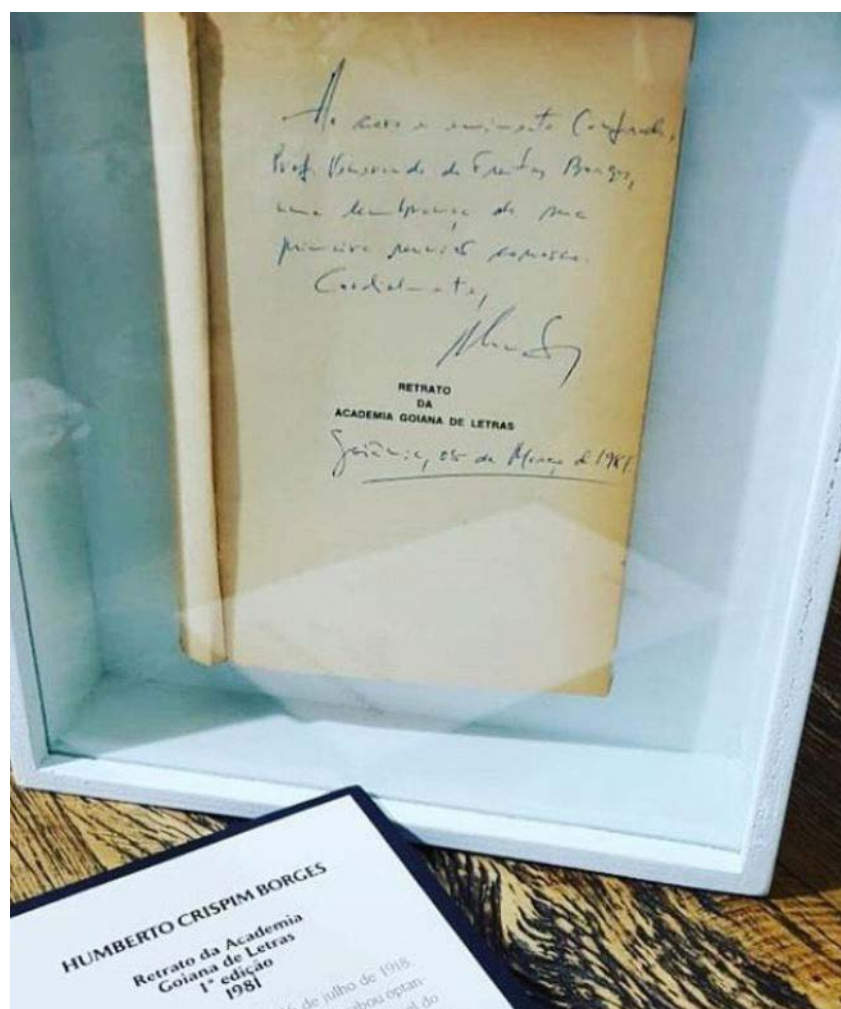 Ao caro e eminente Confrade,
Prof. Venerando de Freitas Borges,
uma lembrança de sua
primeira reunião conosco.
Cordialmente,
RETRATO
DA
ACADEMIA GOIANA DE LETRAS
Goiânia, 05 de Março de 1981
HUMBERTO CRISPIM BORGES
Retrato da Academia
Goiana de Letras
1ª edição
1981
de julho de 1918.
optan-